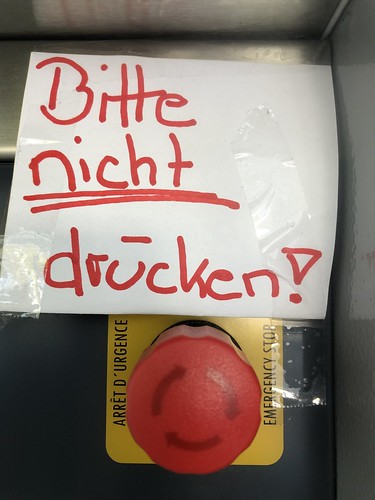 Bitte
nicht
drücken!
ARRÊT D'URGENCE
EMERGENCY STOP